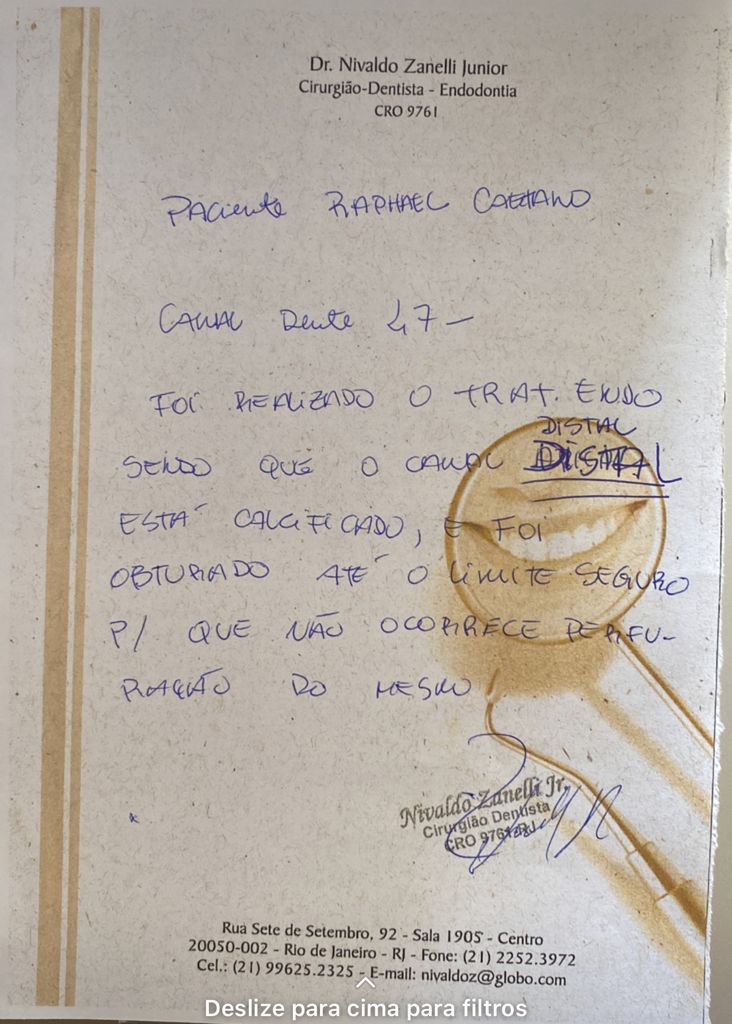 Dr. Nivaldo Zanelli Junior
Cirurgião-Dentista - Endodontia
CRO 9761
PACIENTE RAPHAEL CAETANO
CANAL DENTE 47 -
FOI REALIZADO O TRAT. ENDO
DISTAL
SENDO QUE O CANAL DISTAL
ESTÁ CALCIFICADO, E FOI
OBTURADO ATÉ O LIMITE SEGURO
P/ QUE NÃO OCORRECE PERFU-
RAÇÃO DO MESMO
Nivaldo Zanelli Jr.
Cirurgião Dentista
CRO 9761-RJ
Rua Sete de Setembro, 92 - Sala 1905 - Centro
20050-002 - Rio de Janeiro - RJ - Fone: (21) 2252.3972
Cel.: (21) 99625.2325 - E-mail: nivaldoz@globo.com
Deslize para cima para filtros